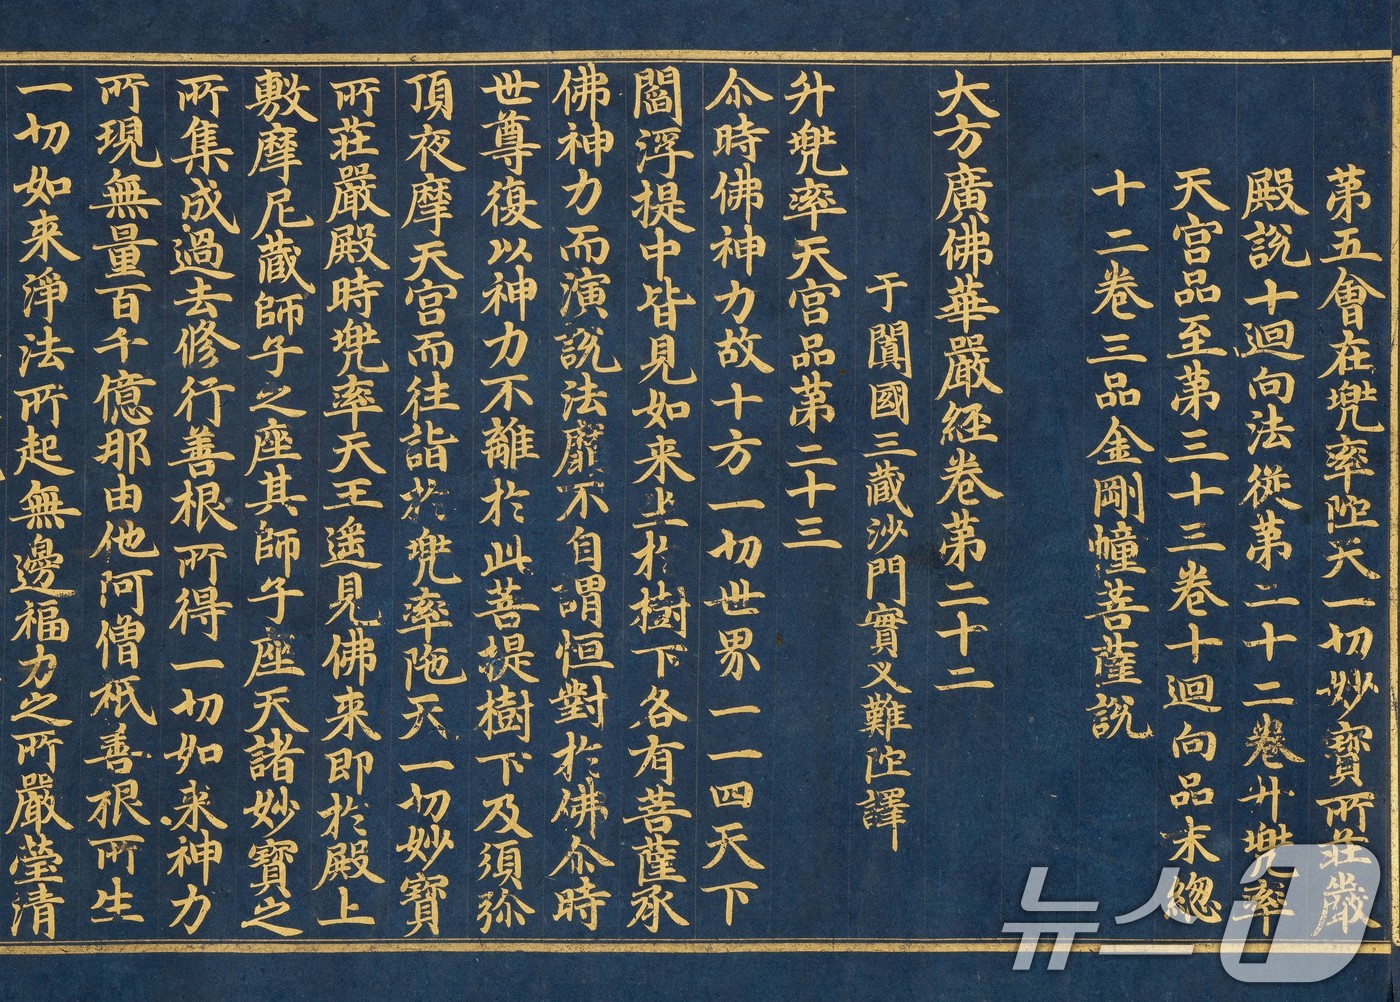 第五會在兜率陁天一切妙寳所莊嚴
殿說十迴向法從第二十二卷升兜率
天宮品至第三十三卷十迴向品末總
十二卷三品金剛幢菩薩說
大方廣佛華嚴経卷第二十二
于闐國三藏沙門實叉難陁譯
升兜率天宮品第二十三
尒時佛神力故十方一切世界一一四天下
閻浮提中皆見如来坐於樹下各有菩薩承
佛神力而演說法靡不自謂恒對於佛尒時
世尊復以神力不離於此菩提樹下及須弥
頂夜摩天宮而往詣於兜率陁天一切妙寳
所莊嚴殿時兜率天王遥見佛来即於殿上
敷摩尼藏師子之座其師子座天諸妙寳之
所集成過去修行善根所得一切如来神力
所現無量百千億那由他阿僧祇善根所生
一切如来淨法所起無邊福力之所嚴瑩清
뉴스1